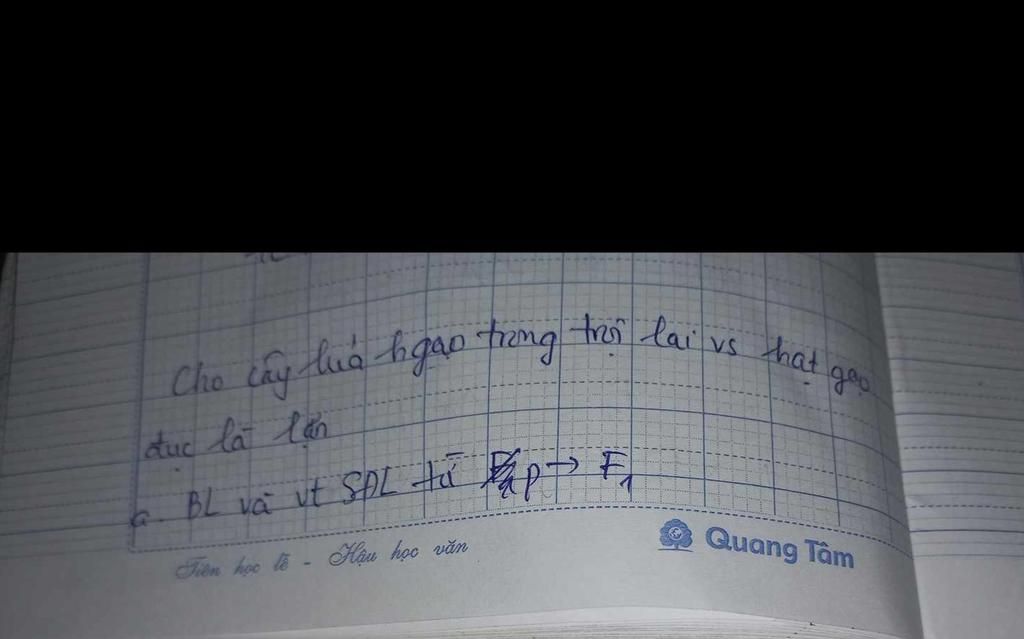 Cho cây luá hgạo trong trội lai vs hạt gạo
đục là lặn
a. BL và vt SĐL từ P → F1
Tiên học lễ - Hậu học văn
Quang Tâm